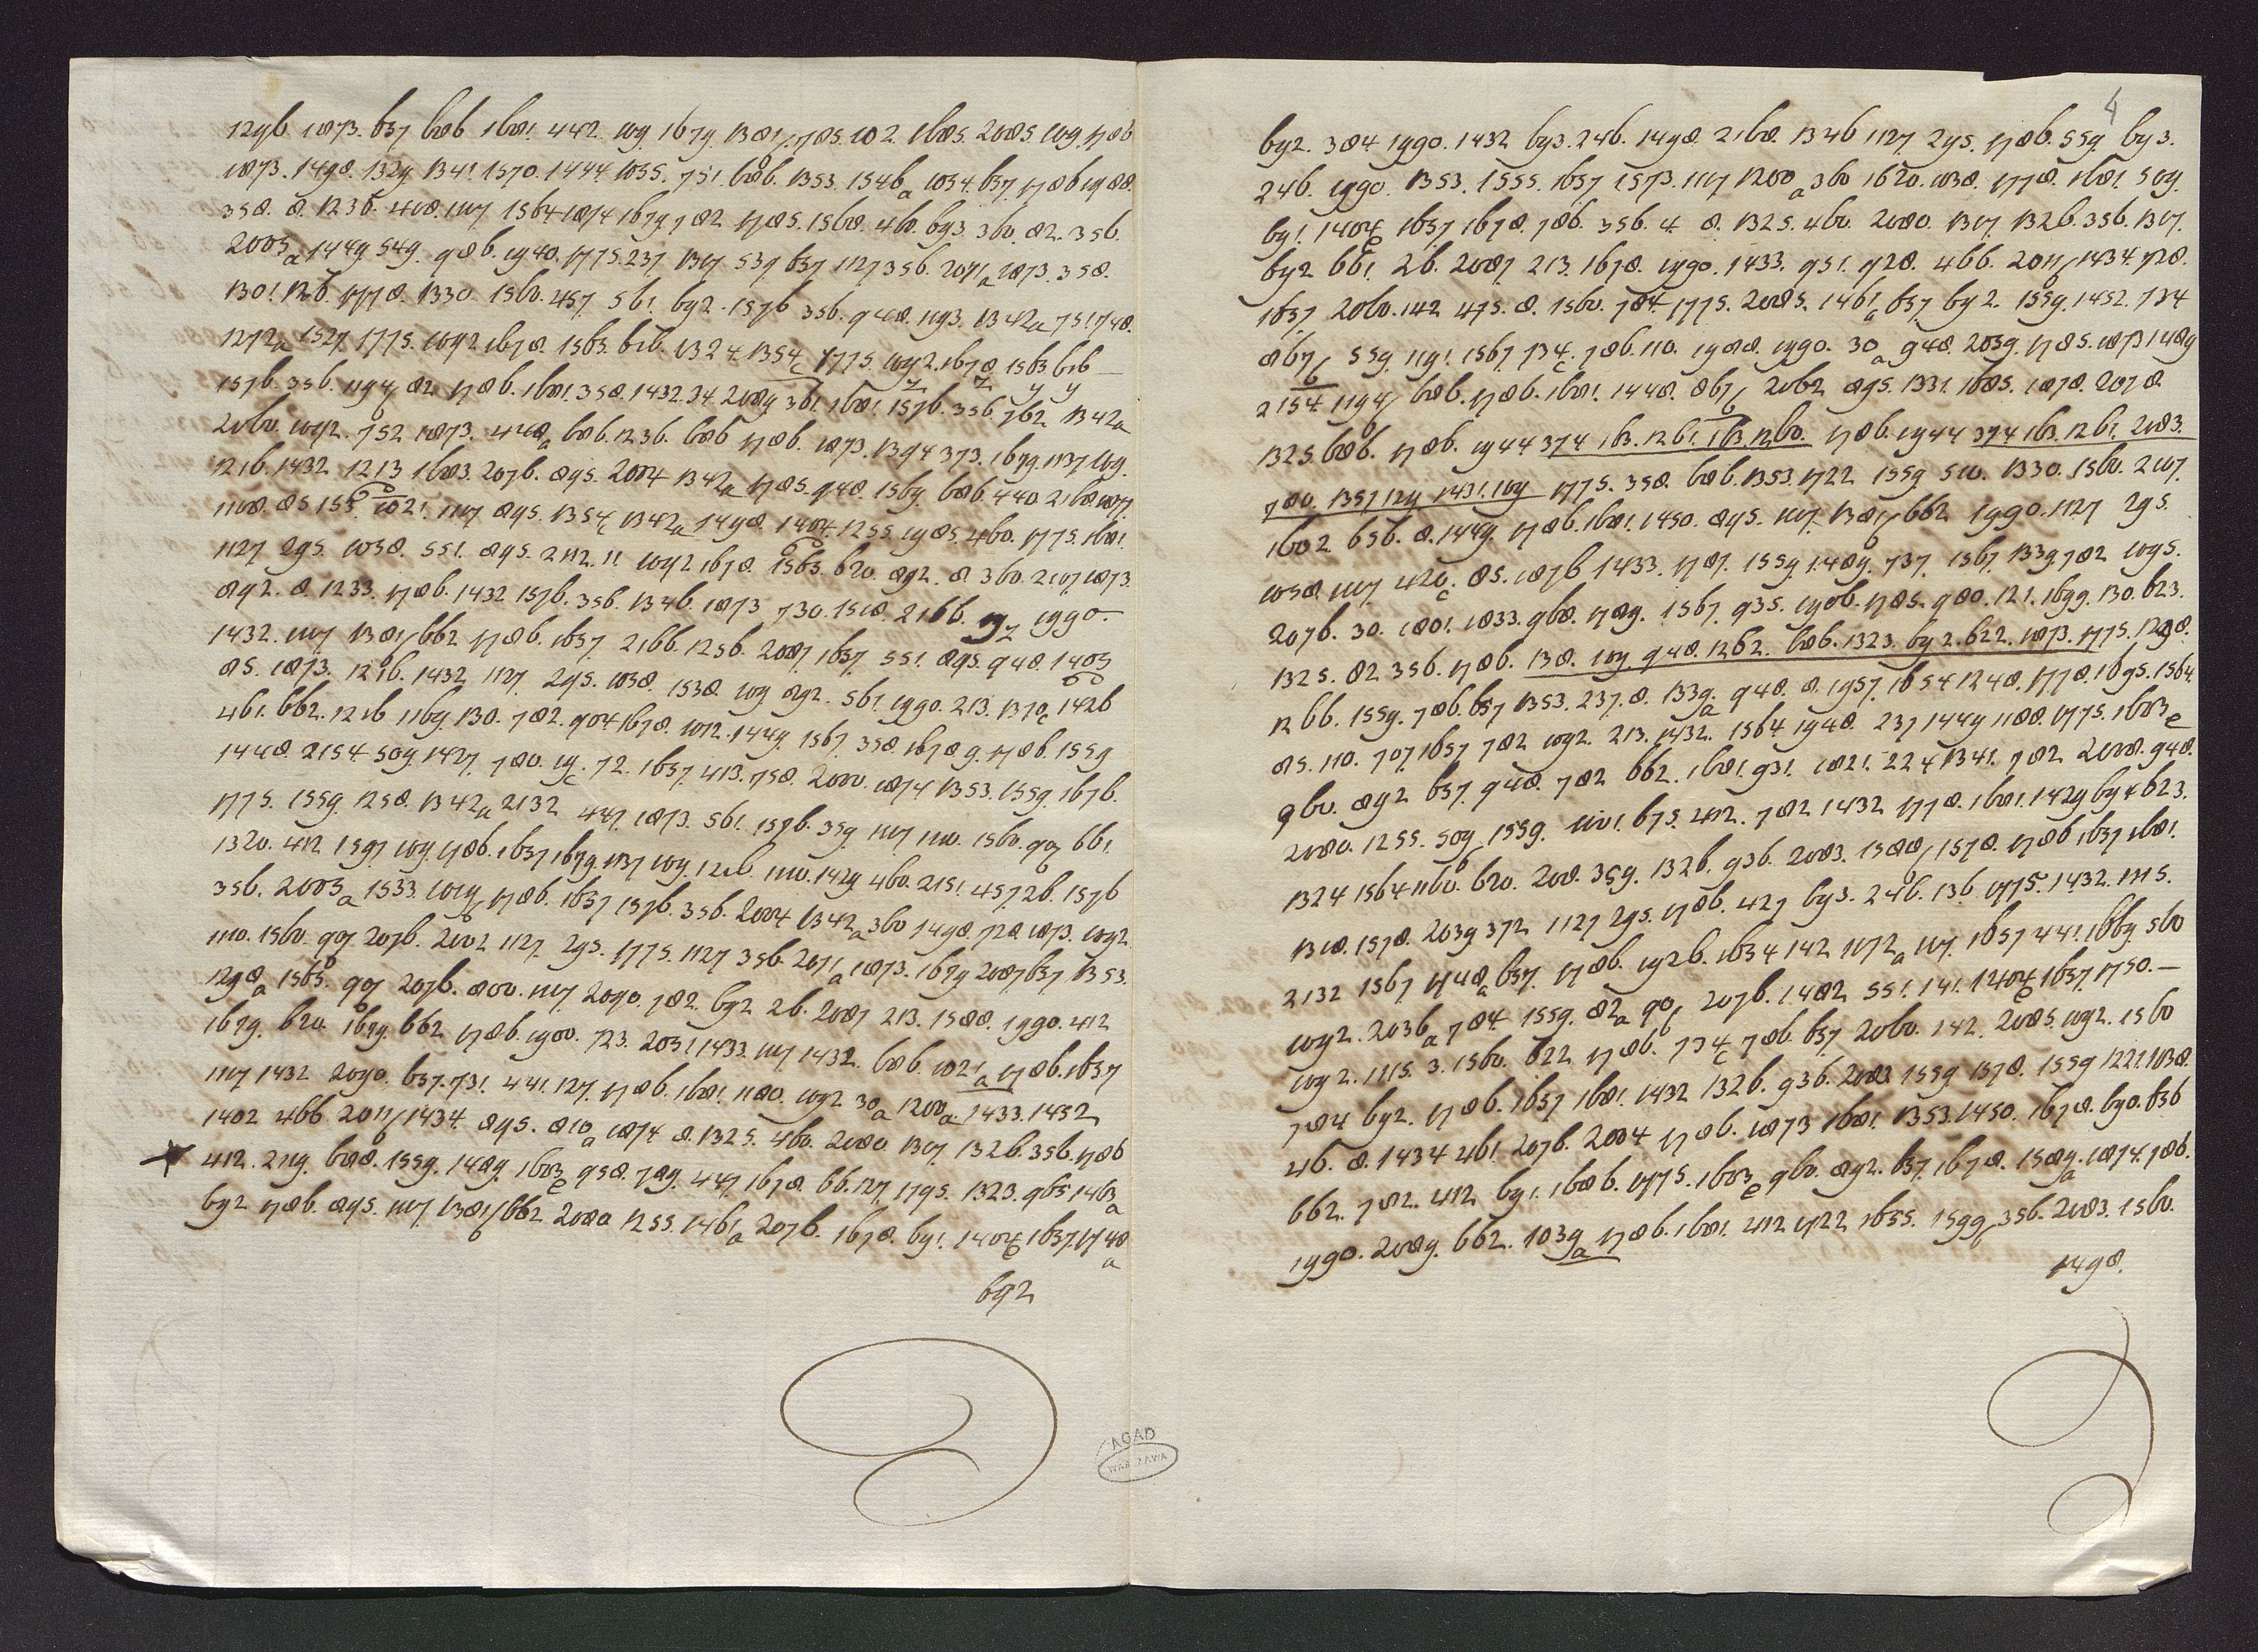 1296. 1873. 657 686 1681. 442. 109. 1679. 1381. 785. 102. 1685. 2085. 109. 1786
1873. 1498. 1329 1341. 1570. 1444. 1055. 751. 686. 1353. 1546a 1034. 657. 1786 1988.
358. 8. 1236. 408. 1107 1564 1874 1679 782 1785. 1568. 460. 693. 360. 82. 356.
2005a 1449 549. 986. 1940. 1775. 237. 1307 539 657 1127 356. 2071a 1873. 358.
1301. 126. 1778. 1330. 1560. 457 561. 692. 1576 356. 948. 1193. 1342a 751. 748.
1272a 1527. 1775. 1092. 1678. 1563. 616. 1324. 1354c 1775. 1092. 1678 1563 616
1576. 356. 1194 82 1786. 1681. 358. 1432. 24. 2089 361. 1681. 1576. 356. 762 1342a
2060. 1092. 752 1873. 448a 686. 1236. 686 1786. 1873. 1394 373. 1679. 1137 109.
1216. 1432 1213 1683. 2076. 895. 2004 1342a 1785. 948. 1569. 686. 440 2168. 1077.
1021. 1107 895. 1354c 1342a 1498. 1404. 1255. 1985. 460. 1775. 1681.
1127 295. 1038. 551. 895. 2112. 11 1092 1678. 1563. 620. 892. 8. 360. 2107. 1873.
892. 8. 1233. 1786. 1432 1576. 356. 1346. 1873 730. 1518. 2166. 1990
1432. 1107 1381 662 1786. 1657 2166. 1256. 2087 1657. 551. 895. 948. 1403
85. 1873. 1216. 1432 1127. 295. 1038. 1538. 109 892. 561. 1990. 213. 1370c 1426
461. 662. 1216 1169. 130. 782. 904 1678. 1012. 1449. 1567 358 1678 9. 1786. 1559
1448. 2154 509. 1427. 780. 19c. 72. 1657. 413. 758. 2000. 1874 1353. 1559. 1676.
1775. 1559. 1258. 1342a 2132 447. 1873. 561. 1576. 359. 1107 110. 1560. 907 661.
1320. 412 1597 109. 1786. 1657 1679. 1137 109. 1216. 110. 1429 460. 2151. 457. 26. 1576
356. 2003a 1533. 1019 1786. 1657 1576. 356. 2004 1342a 360 1498. 728 1873. 1092.
110. 1560. 907 2076. 2002 1127. 295. 1775. 1127 356. 2071a 1873. 1679 2087 657 1353.
1298a 1563. 907 2076. 800. 1107 2090. 782. 692 26. 2087 213. 1588. 1990. 412
1679. 620. 1679. 662 1786. 1900. 723. 2031 1433. 1107 1432. 686. 1021a 1786. 1657
1107 1432 2090. 657. 731. 441. 127. 1786. 1681. 1180. 1092 30a 1200a. 1433. 1452
1402 466. 2011 1434. 895. 810a 1874 8. 1325. 460. 2080 1307. 1326. 356. 1786
412. 2119. 688. 1559. 1489. 1683e 958. 789. 447. 1678. 66. 127. 1795. 1323. 965 1463a
692 1786. 895. 1107 1381 662 2080 1255. 1461a 2076. 1678. 691. 1404 1657. 1748a
692
4
692. 384 1990. 1432 693. 246. 1498. 2168. 1346 1127 295. 1786. 559 693.
246. 1990. 1353. 1555. 1657 1573. 1107 1200a 360 1620. 1038. 1778. 1681. 509.
691. 1404 1657 1678. 786. 356. 4. 8. 1325. 460. 2080. 1307 1326. 356. 1307.
692 661 26. 2087 213. 1678. 1990. 1433. 951. 928. 466. 2011 1434. 728.
1657. 2060. 142 475. 8. 1560. 784. 1775. 2085. 1461a 657 692. 1559. 1452. 734
867 559 1191. 1567 734c. 786. 110. 1988. 1990. 30a 948. 2039. 1785. 1873 1489
2154. 1194 686. 1786. 1681. 1448. 867 2062 895. 1331. 1685. 1878. 2078.
1325. 686. 1786. 1944 374 163. 1261. 163. 1260. 1786. 1944 374 163. 1261. 2083.
780. 1357 129 1431. 109 1775. 358. 686. 1353. 1722 1559 510. 1330. 1560. 2107.
1602 656. 8. 1449. 1786. 1681. 1450. 895. 1107. 1381 662 1990. 1127 295.
1038. 1107 420c. 85. 1876 1433. 178. 1559. 1489. 737. 1567. 1339. 782 1095.
2076. 30. 1801. 1833. 968. 1789. 1567. 935. 1906. 1785. 980. 121. 1699. 130. 623.
1325. 82 356. 1786. 138. 109. 948. 1262. 686. 1323. 692. 622. 1873. 1775. 1298.
1266. 1559. 786. 657 1353. 237. 8. 1339a. 948. 8. 1957. 1654 1248. 1778. 1695. 1564.
85. 110. 707 1657 782 1092. 213. 1432. 1564 1948. 237 1449 1188. 1775. 1683e
960. 892 657. 948. 782 662. 1681. 931. 1821. 224 1341. 782 2008. 948.
2080. 1255. 509 1559. 675. 412. 782 1432 1778. 1681. 1429 694 623.
1324 1564 1160. 620. 208. 359. 1326. 936. 2083. 1388 1578. 1786 1657 1681.
1318. 1578. 2039 372 1127 295. 1786. 427 693. 246. 136. 1775. 1432. 1115.
2132 1567 1748a 657. 1786. 1926. 1634 142 1172a 1107. 1657 441. 1669. 560
1092. 2036a 784. 1559. 82a 907 2076. 1482 551. 141. 1404 1657. 1750.
1092. 1115. 3. 1560. 622 1786. 734c 786. 657 2060. 142. 2085. 1092. 1560
784 692. 1786. 1657 1681. 1432 1326. 936. 2083 1559 1578. 1559 1221. 1038.
46. 8. 1434 461. 2076. 2004 1786. 1873 1681. 1353. 1450. 1678. 690. 656
662. 782. 412 691. 1686. 1775. 1683e 960. 892. 657 1678. 1589a. 1874. 786.
1990. 2089. 662. 1039a 1786. 1681. 412 1722 1655. 1599 356. 2083. 1560.
1498.
AGAD
WARSZAWA